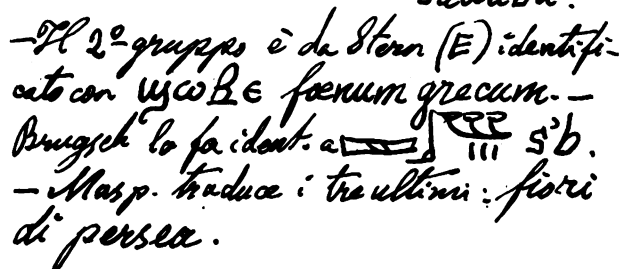 – Il 2º gruppo è da Stern (E) identifi-
cato con ϣωβε foenum graecum. –
Brugsch lo fa ident. a š'b.
– Masp. traduce i tre ultimi: fiori
di persea.